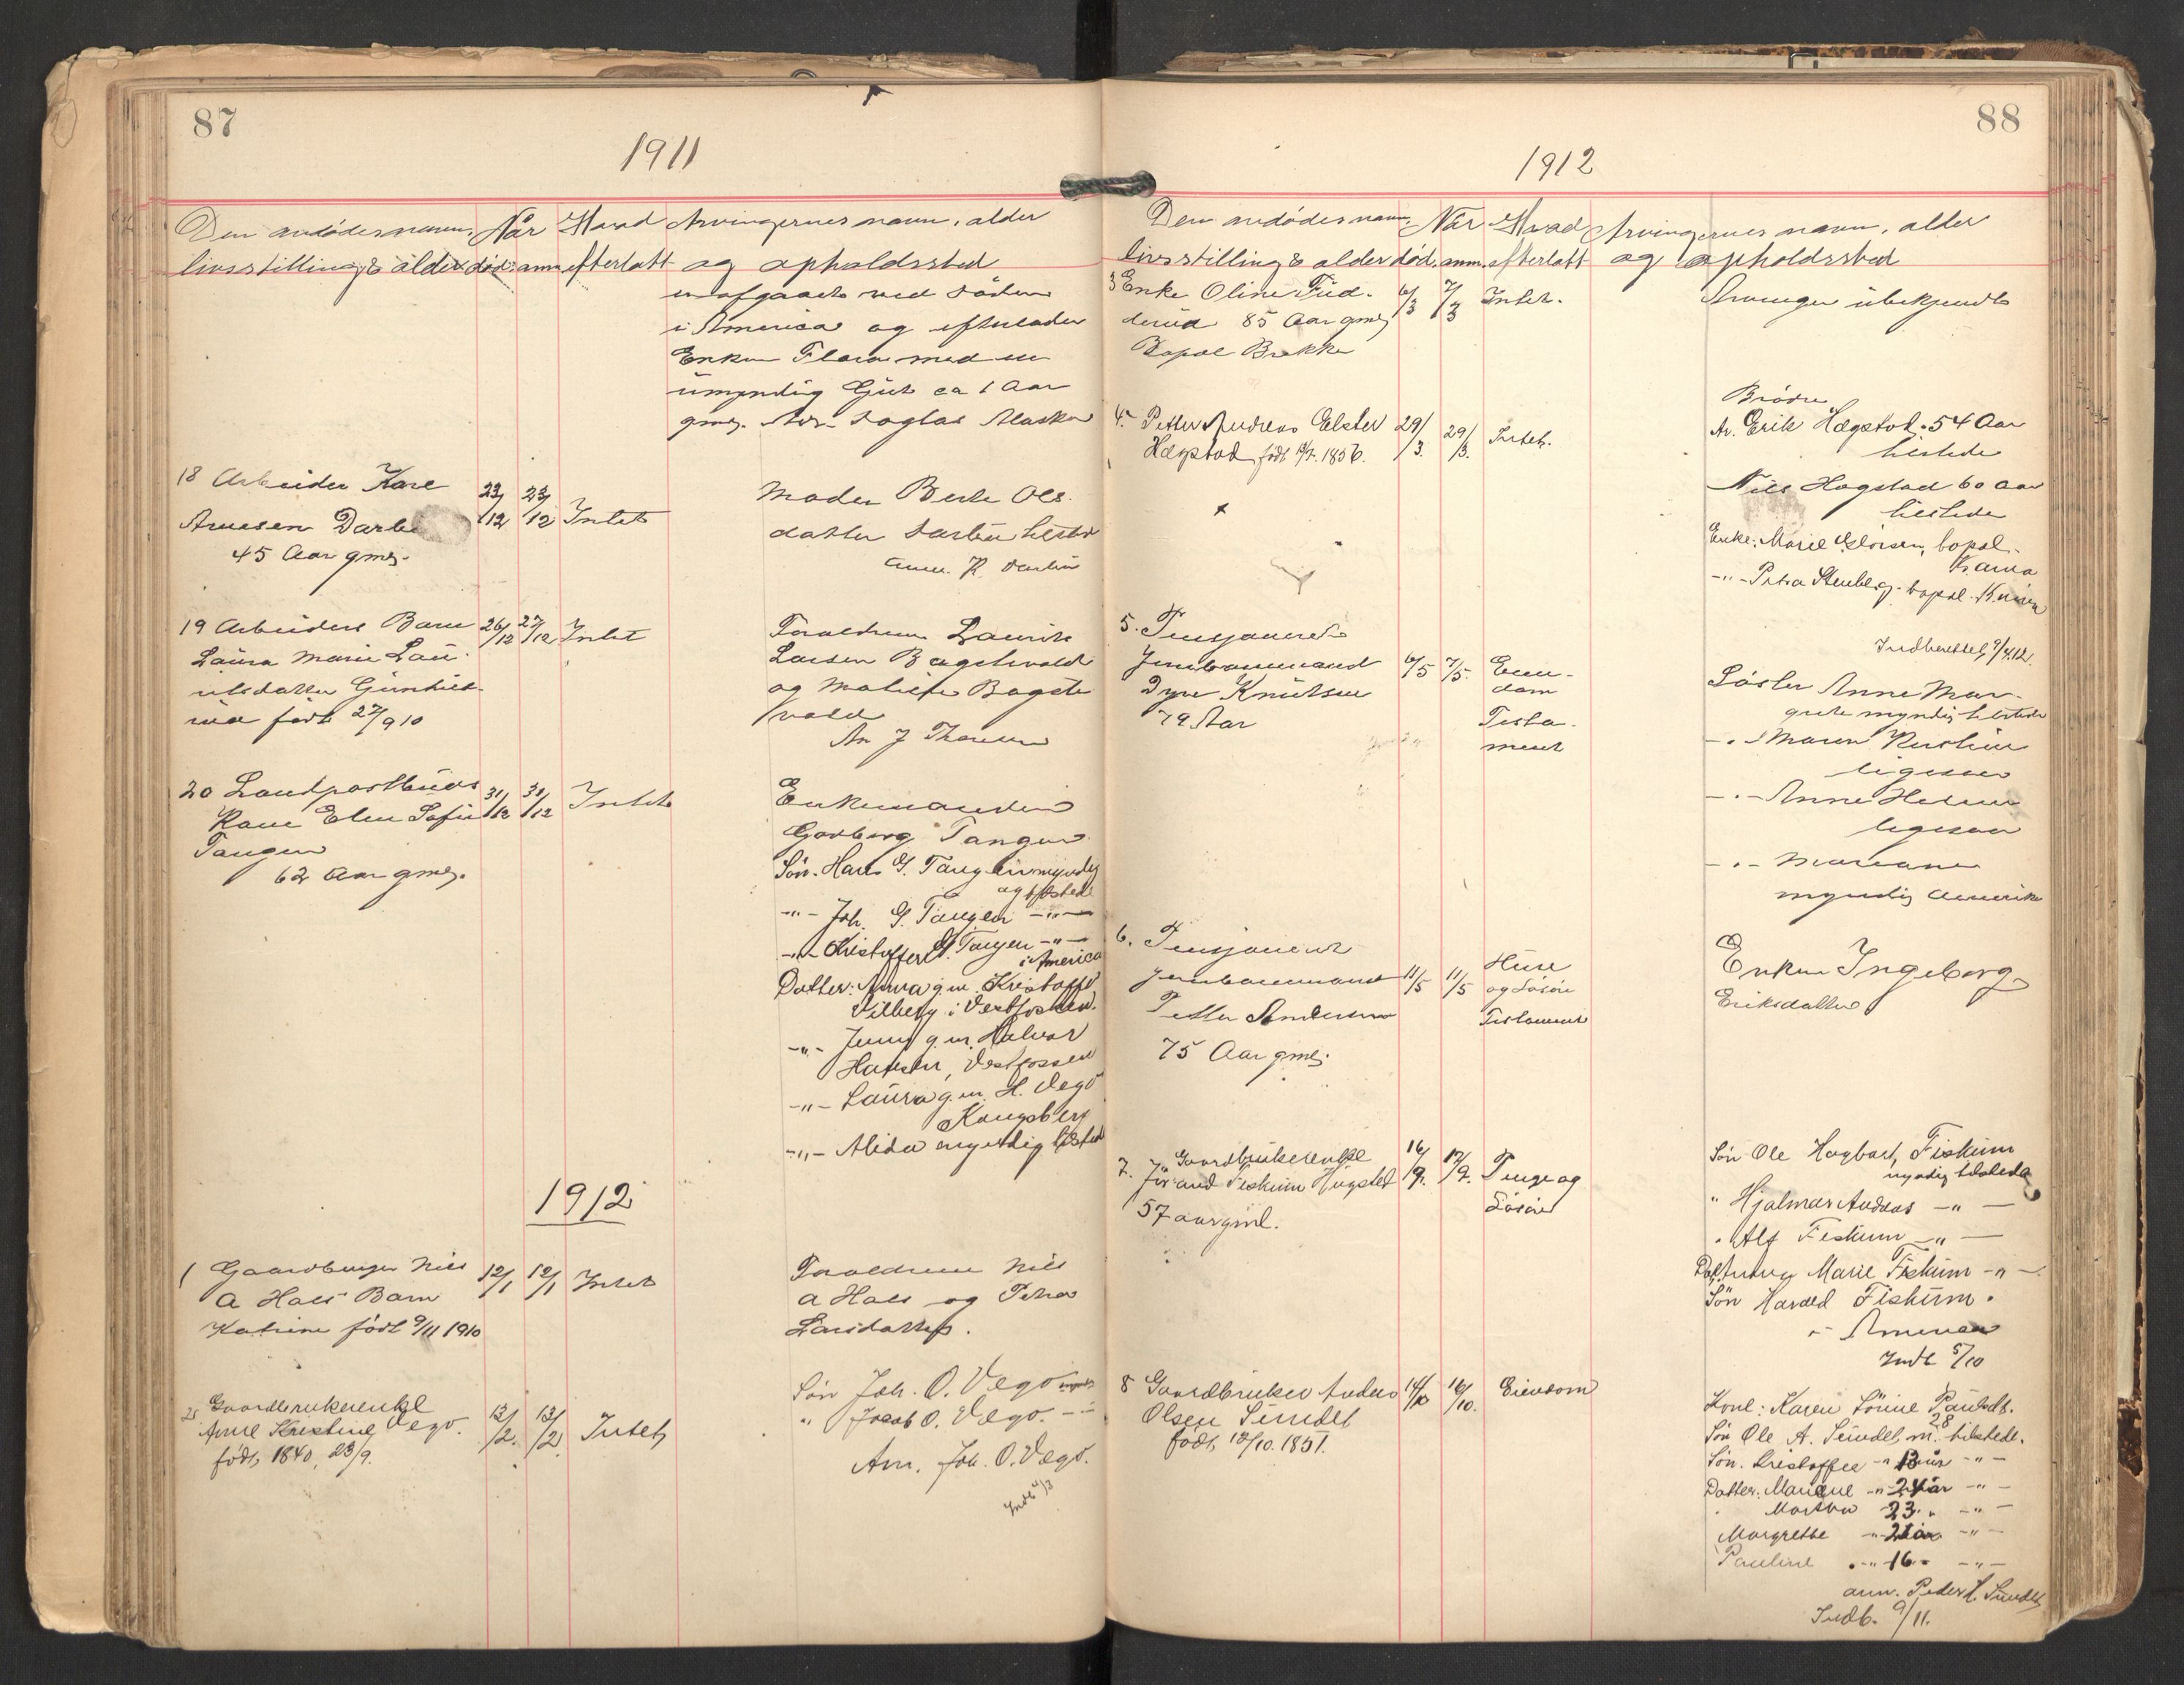 87
1911
Den avdødes navn, Når Hvad Arvingernes navn, alder
livsstilling & alder død. anm. efterlatt og opholdssted
er afgaaet ved Døden
i America og efterlader
Enken Flora med en
umyndig Gut ca 1 Aar
gmel. Adr. Doglas Alaska
18 Arbeider Karl
Arnesen Darbu
45 Aar gmel.
23/12 23/12 Intet
Moder Berte Ols
datter Darbu tilsted
Anm. K Darbu
19 Arbeiders Barn
Laura Marie Lau
ritsdatter Gunhild
rud født 27/9 10
26/12 27/12 Intet
Forældrene Laurits
Larsen Bagstevold
og Mathilde Bagste
vold
An J Thorsen
20 Landpostbuds
Kone Elen Sofie
Tangen
62 Aar gmel.
31/12 31/12 Intet
Enkemanden
Gorborg Tangen
Søn. Hans G. Tangen myndig
og tilstede
-"- Joh. G. Tangen -"-
-"- Kristoffer G. Tangen -"-
i America
Datter: Anna g.m. Kristoffer
Vilberg i Vestfossen.
-"- Jenny g.m. Halvor
Hansen, Vestfossen
-"- Laura g.m. H. Vego
Kongsberg
-"- Alida myndig tilsted
1912
1 Gaardbruger Nils
A Hals Barn
Katrine født 9/11 1910
12/1 12/1 Intet
Forældrene Nils
A Hals og Petra
Larsdatter.
2 Gaardbrukerenke
Anne Kristine Vego.
født, 1840, 23/9.
13/2. 13/2 Intet
Søn Joh. O. Vego myndig
" Jacob O. Vego. -"-
Am. Joh. O. Vego.
Indb 4/3
88
1912
Den avdødes navn, Når Hvad Arvingernes navn, alder
livsstilling & alder død. anm. efterlatt og opholdssted
3 Enke Oline Fud-
derud 85 Aar gmel
Bopæl Brekke
6/3 7/3 Intet.
Arvinger ubekjendt
4. Petter Andreas Elster
Hægstad, født 1856.
29/3. 29/3. Intet.
Brødre
Ar. Erik Hægstad. 54 Aar
tilstede
Nils Hogstad 60 aar
tilstede
Enke: Marie bopæl.
-"- Petra Stenberg. bopæl.
Indberettet 9/4 12.
5. Pensjonert
Jernbanemand
Dyre Knutsen
79 Aar
6/5 7/5. Eien-
dom
Testa-
ment
Søster Anne Mar-
grete myndig tilstede
-"- Maren Kirstine
ligesaa
-"- Anne Helene
ligesaa
-"- Mariane
myndig Amerika
6. Pensjonert
Jernbanemand
Petter Andersen
75 Aar gmel.
11/5 11/5 Huse
og Løsøre
Testament
Enken Ingeborg
Eriksdatter
7. Gaardbrukerenke
Jørand Fiskum Hugstet
57 aar gml.
16/9. 17/9. Penge og
Løsøre
Søn Ole Hagbart, Fiskum
myndig tilstede
" Hjalmar Andreas -"-
" Alf Fiskum -"-
Dat. Marie Fiskum -"-
Søn Harald Fiskum.
-"- America
Indb 5/10
8 Gaardbruker Anders
Olsen Sundet
født, 18/10. 1851.
14/10 16/10. Eiendom
Kone: Karen Lovine Paulsdt.
28
Søn Ole A. Sundet, m. tilstede.
Søn. Kristoffer -"- 13 år -"-
Datter: Mariane -"- 24 år -"-
" Martha 23. " -"-
Margrethe -"- 21 år -"-
Pauline -"- 16 " -"-
anm. Peder H. Sundet
Indb. 9/11.